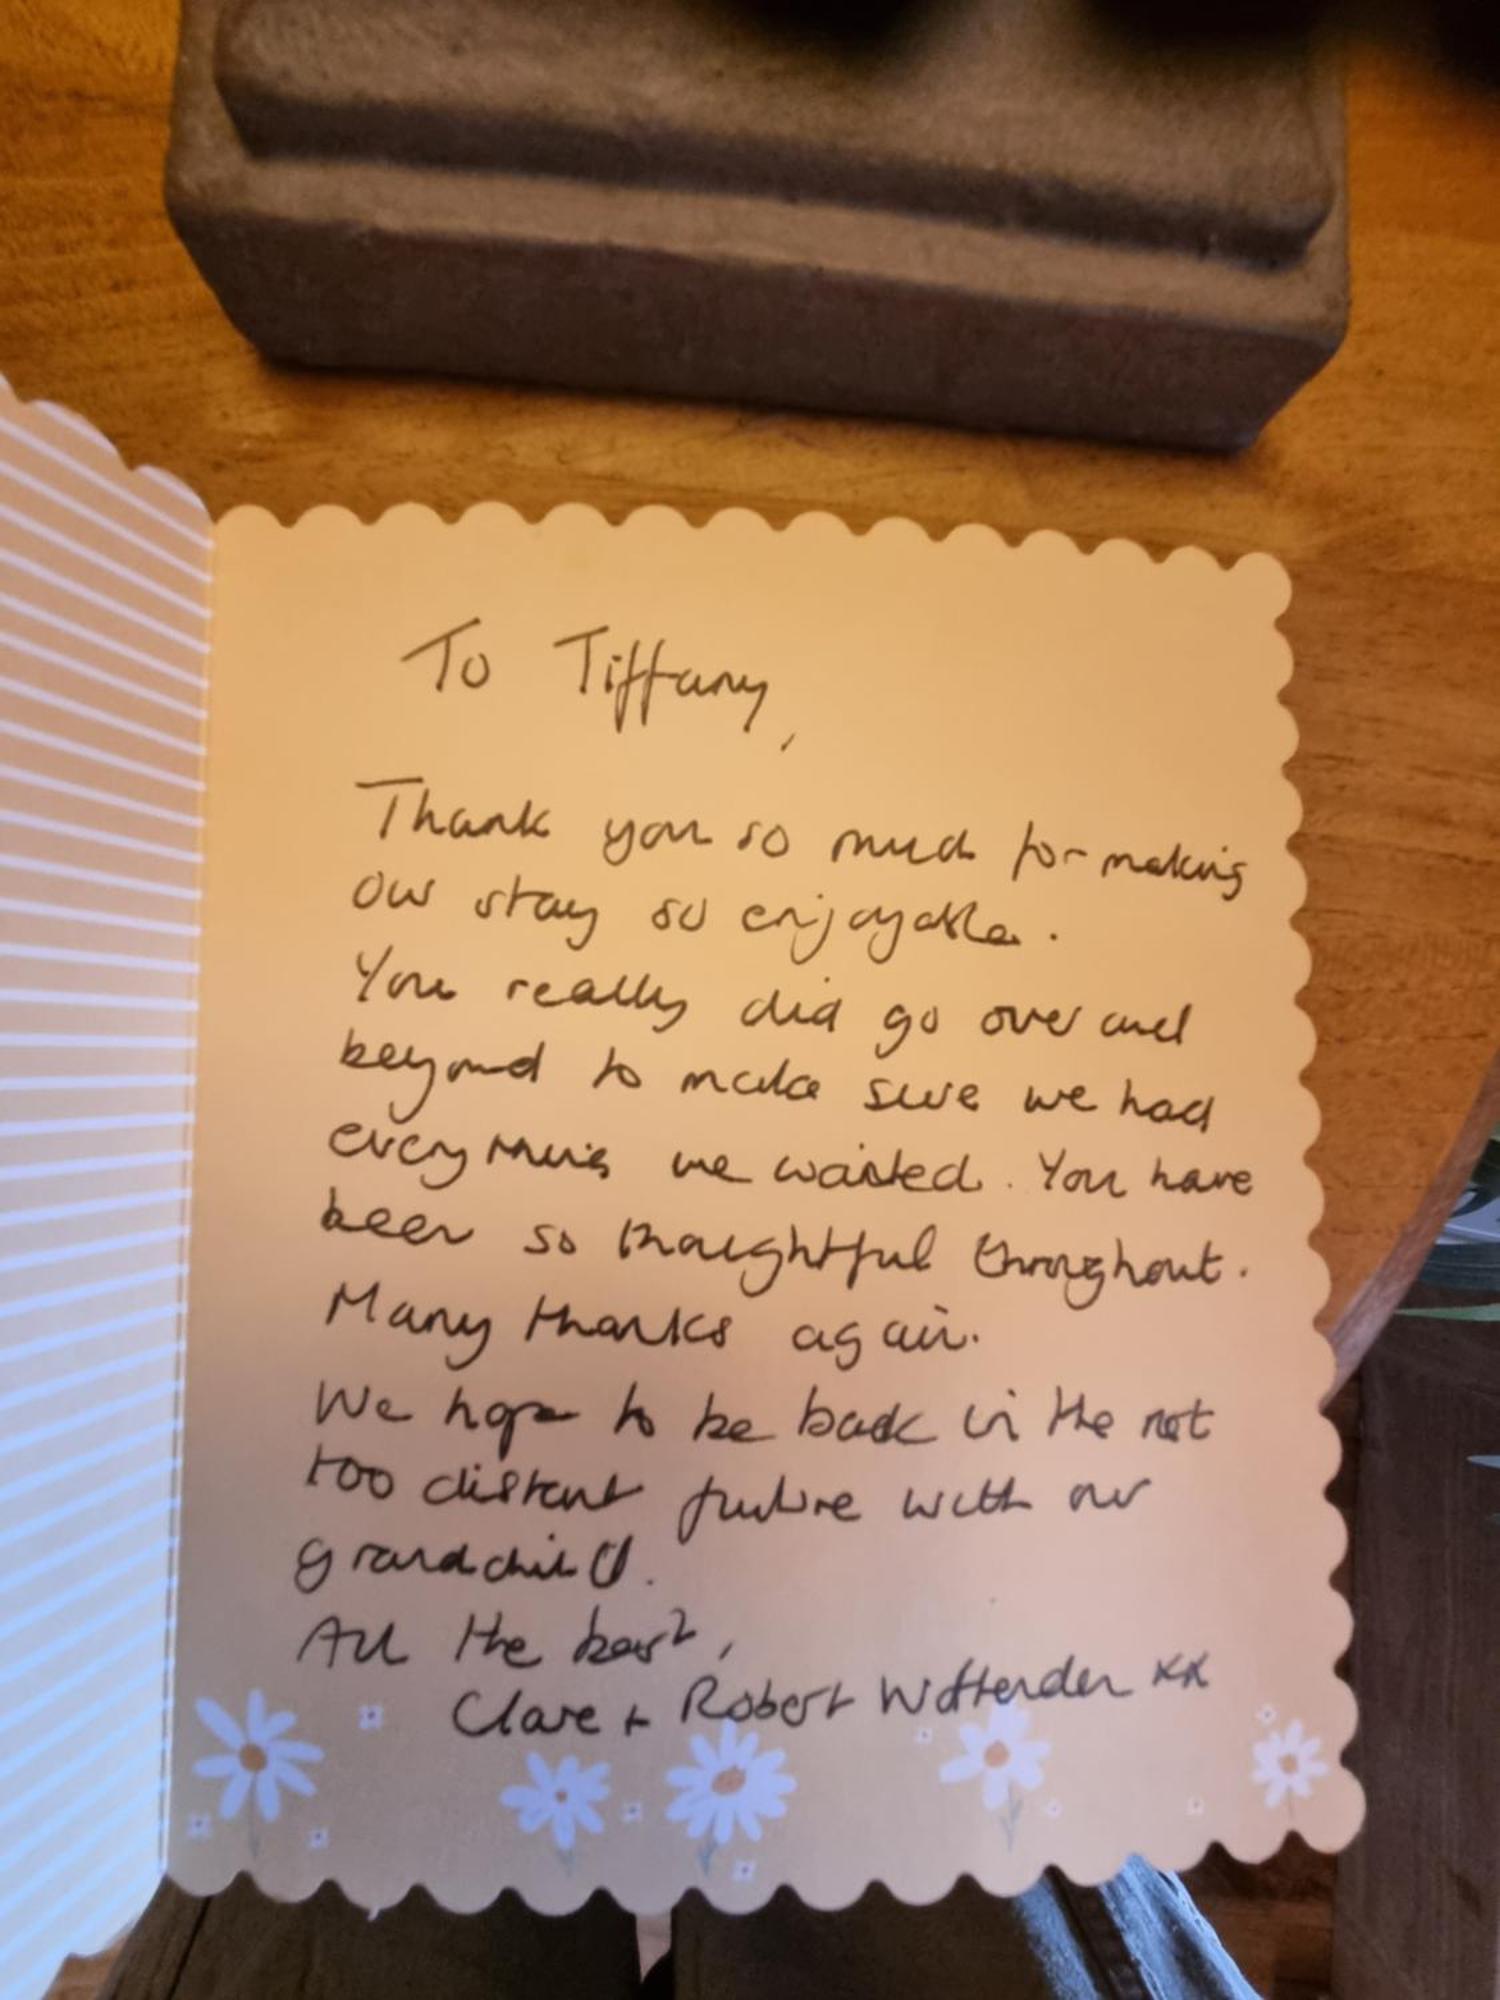 To Tiffany,
Thank you so much for making
our stay so enjoyable.
You really did go over and
beyond to make sure we had
everything we wanted. You have
been so thoughtful throughout.
Many thanks again.
We hope to be back in the not
too distant future with our
grandchild.
All the best,
Clare + Robert xx